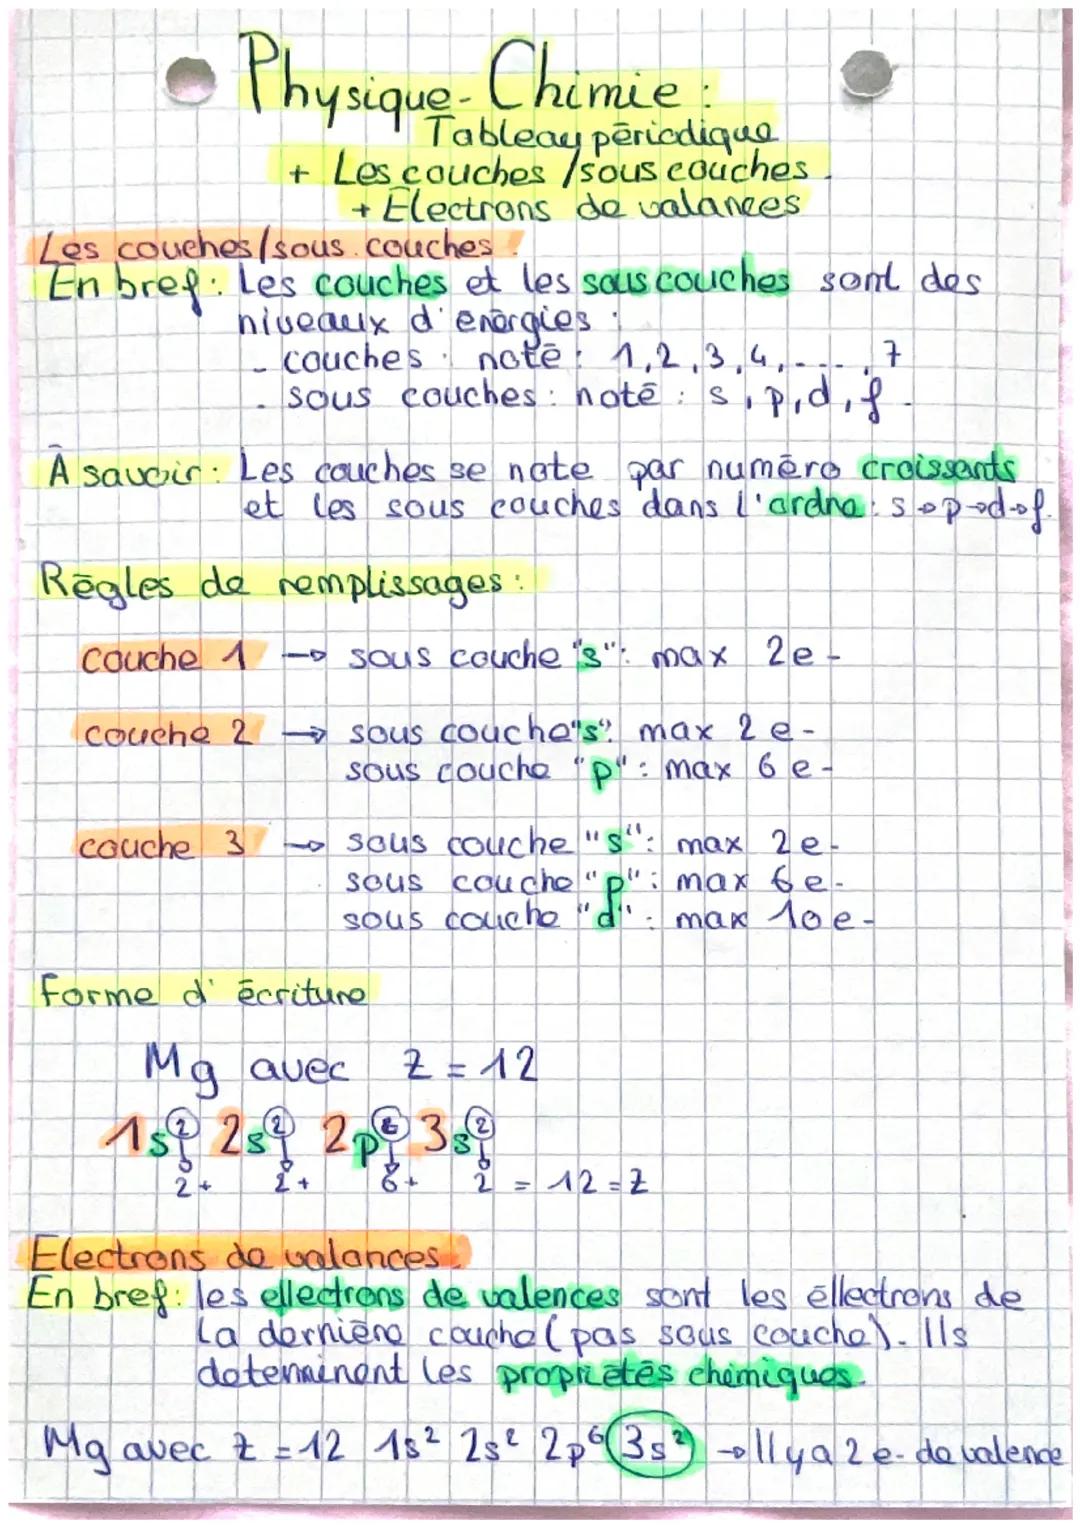 Physique-Chimie :
Tableau périodique
+ Les couches /sous couches.
+ Electrons de valances
Les couches/sous.couches :
En bref : Les couches et les sous couches sont des
niveaux d'énergies :
- couches : noté : 1,2,3,4,----,7
- sous couches : noté : s,p,d,f.
À savoir : Les couches se note par numéro croissants
et les sous couches dans l'ordre : s→p→d→f.
Règles de remplissages :
couche 1 → sous couche "s": max 2e-
couche 2 → sous couche "s": max 2 e-
sous couche "p" : max 6 e-
couche 3 → sous couche "s": max 2e-
sous couche "p": max 6e-
sous couche "d": max 10e-
Forme d'écriture
Mg avec Z = 12
1s² 2s² 2p⁶ 3s²
2+ 2+ 6+ 2 = 12 = Z
Electrons de valances.
En bref : les ellectrons de valences sont les éllectrons de
la dernière couche (pas sous couche). Ils
determinent les propriétés chimiques.
Mg avec Z = 12 1s² 2s² 2p⁶ 3s² → Il y a 2 e- de valence